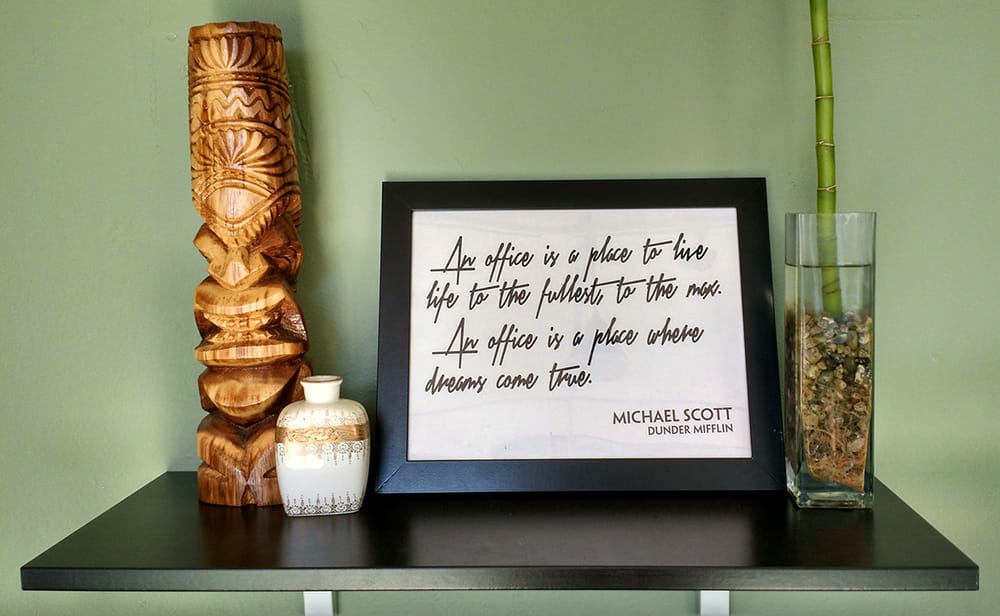 An office is a place to live
life to the fullest, to the max.
An office is a place where
dreams come true.
MICHAEL SCOTT
DUNDER MIFFLIN